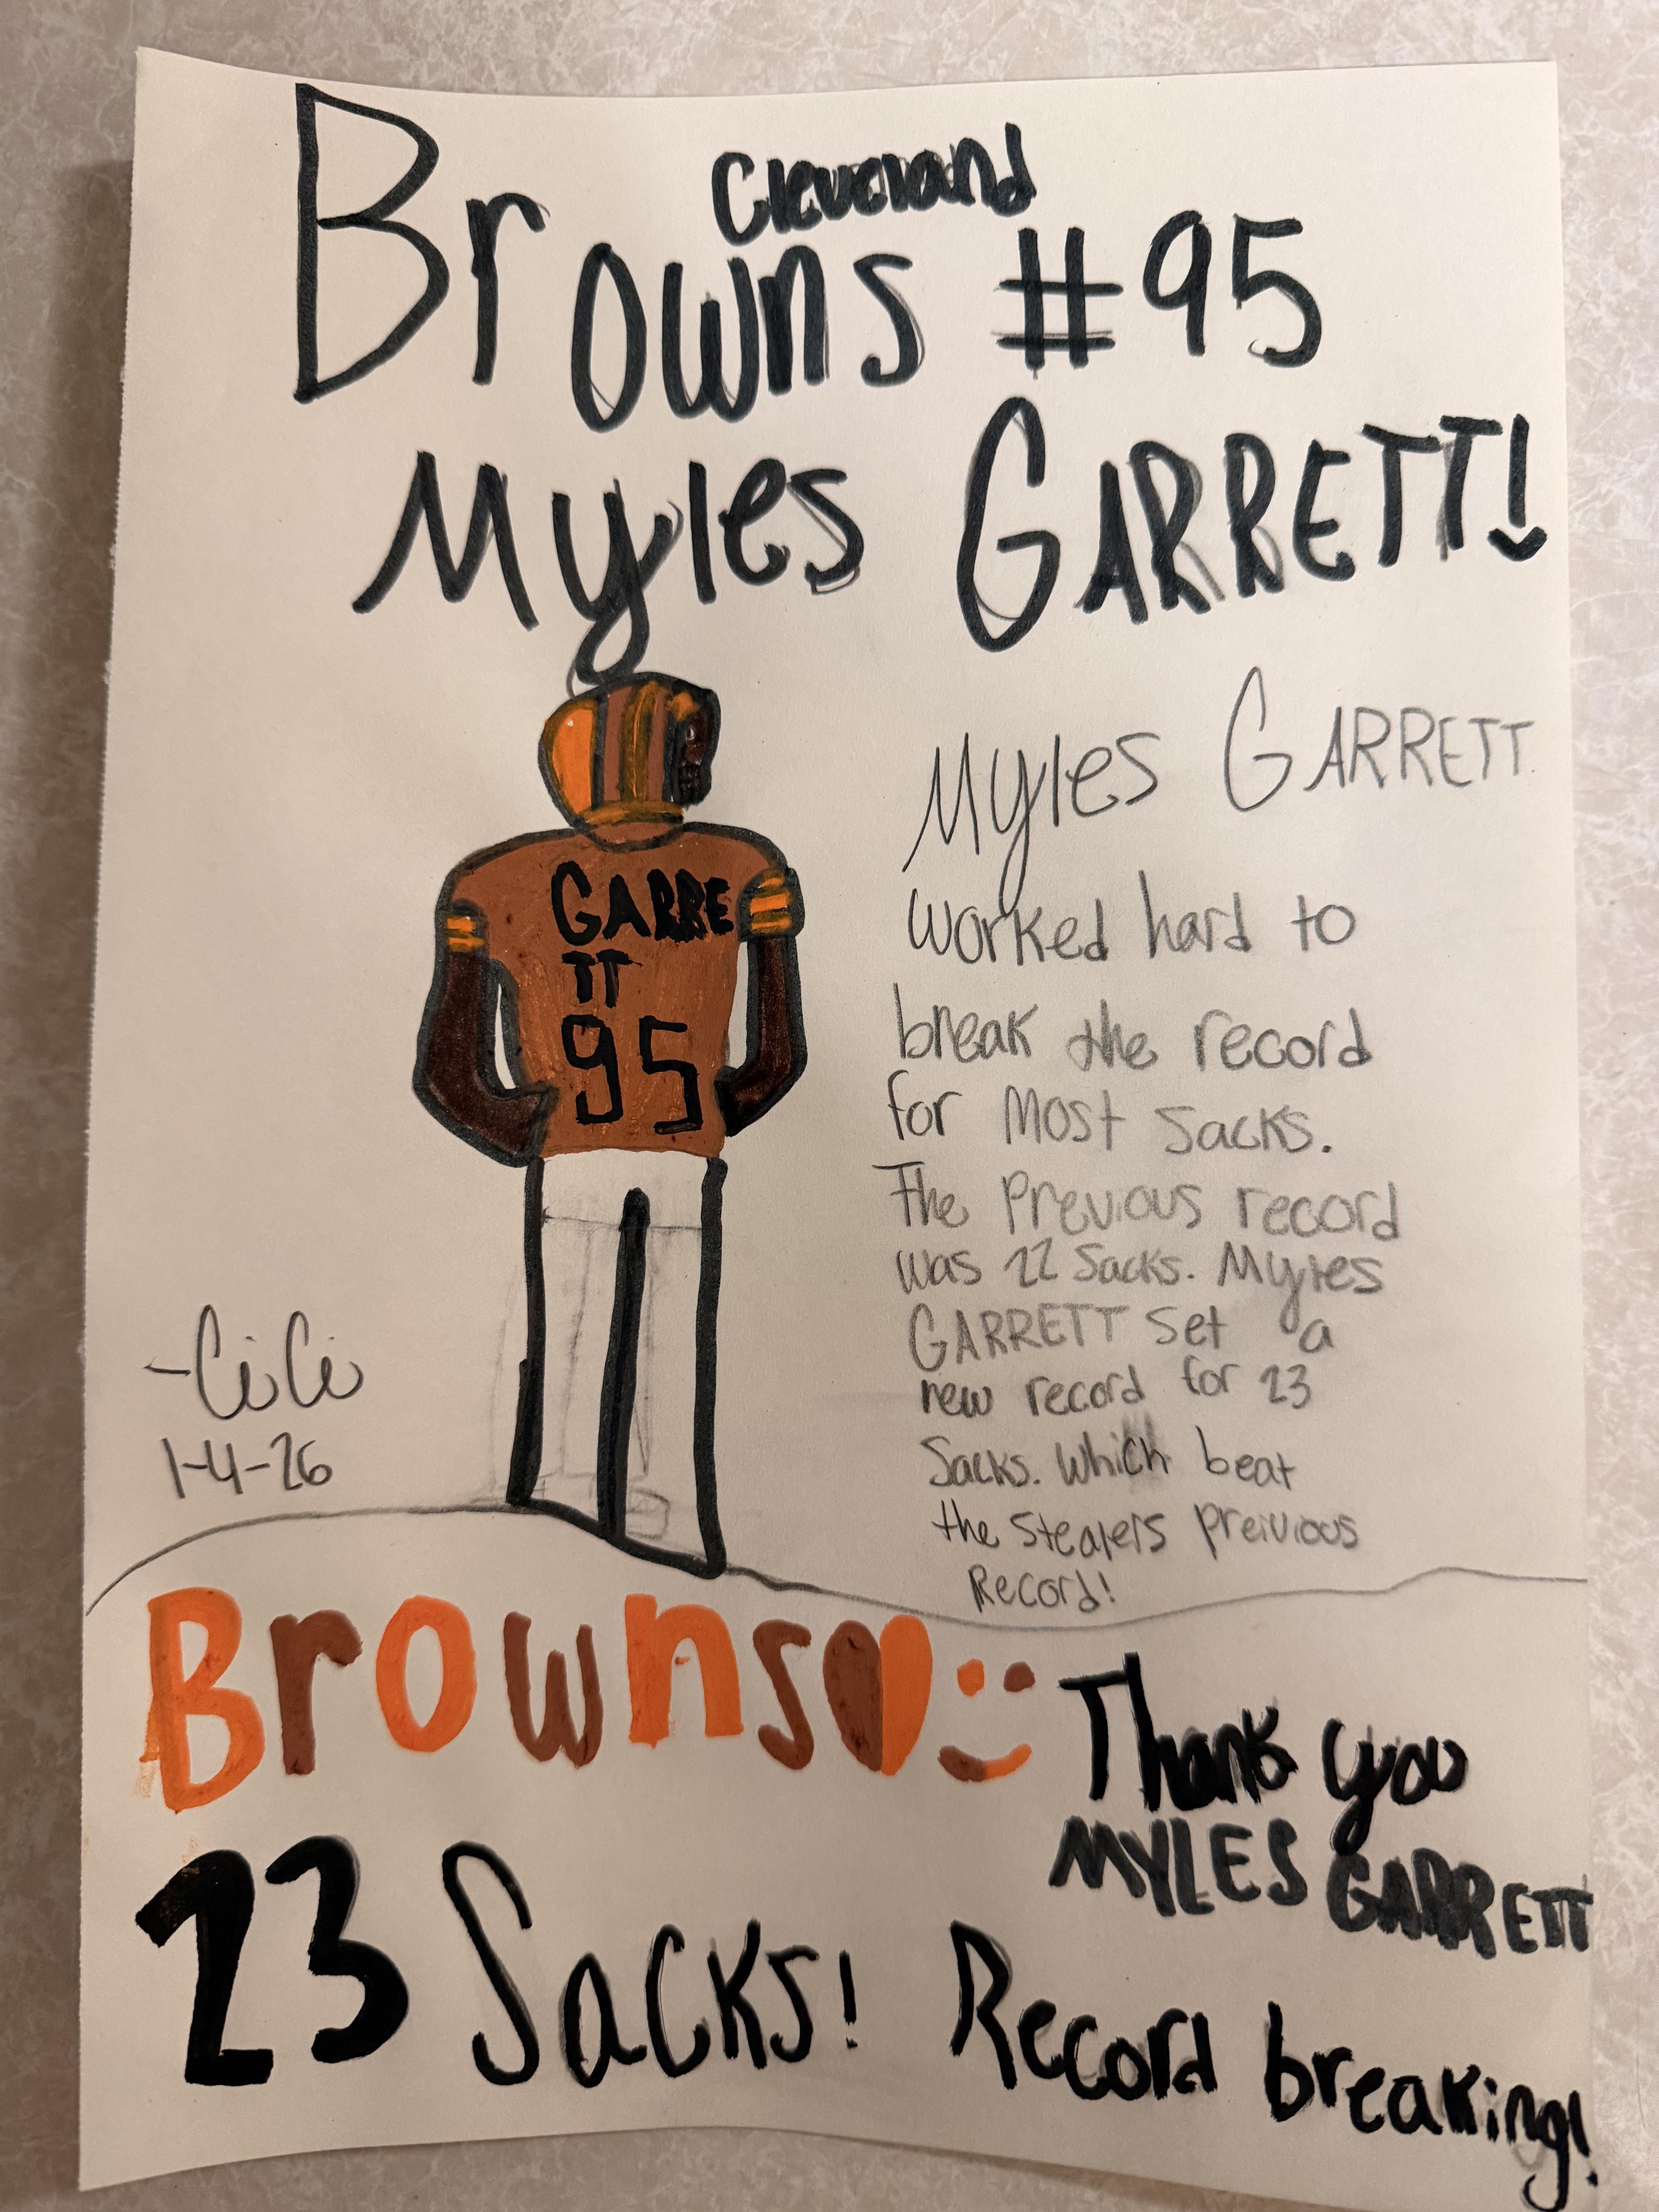 Cleveland
Browns #95
Myles GARRETT!
GARRE
TT
95
Myles GARRETT
worked hard to
break the record
for most sacks.
The Previous record
was 22 Sacks. Myles
GARRETT Set a
new record for 23
Sacks. Which beat
the Stealers preivious
Record!
-CiCi
1-4-26
Browns
Thank you
MYLES GARRETT
23 Sacks! Record breaking!